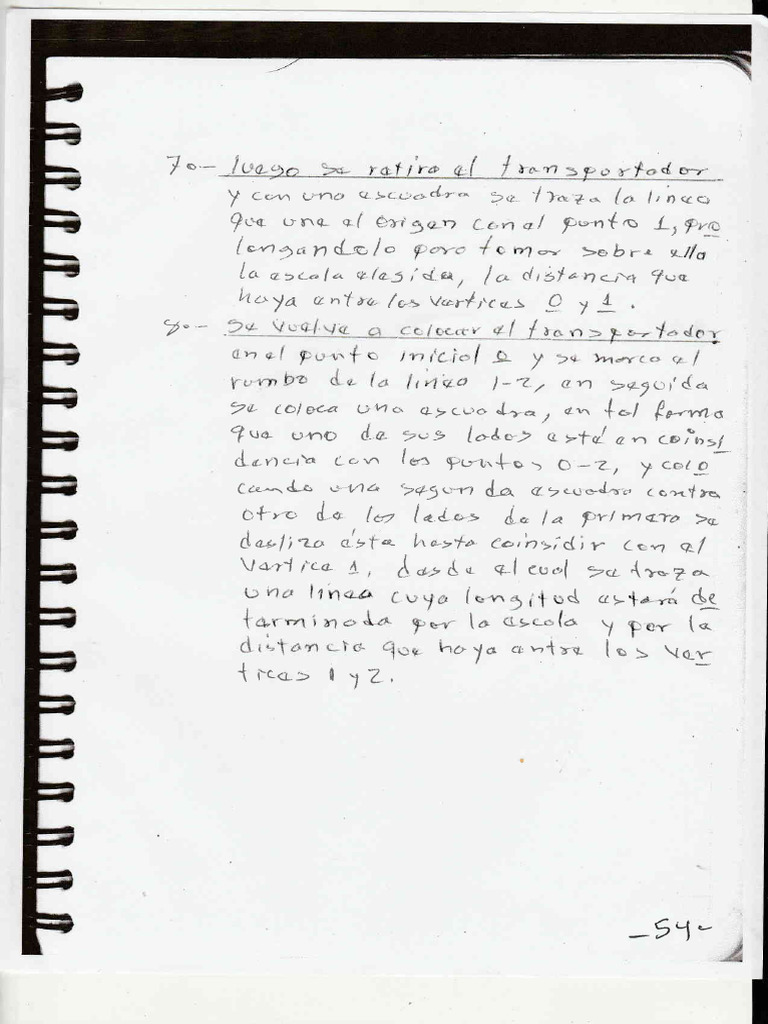 7o- luego se retira el transportador
y con una escuadra se traza la linea
que une el origen con el punto 1, pro
longandolo para tomar sobre ella
la escala elegida, la distancia que
haya entre los vertices 0 y 1.
8o- Se vuelve a colocar el transportador
en el punto inicial 0 y se marca el
rumbo de la linea 1-2, en seguida
se coloca una escuadra, en tal forma
que uno de sus lados esté en coinsi
dencia con los puntos 0-2, y colo
cando una segunda escuadra contra
otro de los lados de la primera se
desliza ésta hasta coinsidir con el
vertice 1, desde el cual se traza
una linea cuya longitud estará de
terminada por la escala y por la
distancia que haya entre los ver
tices 1 y 2.
-54-